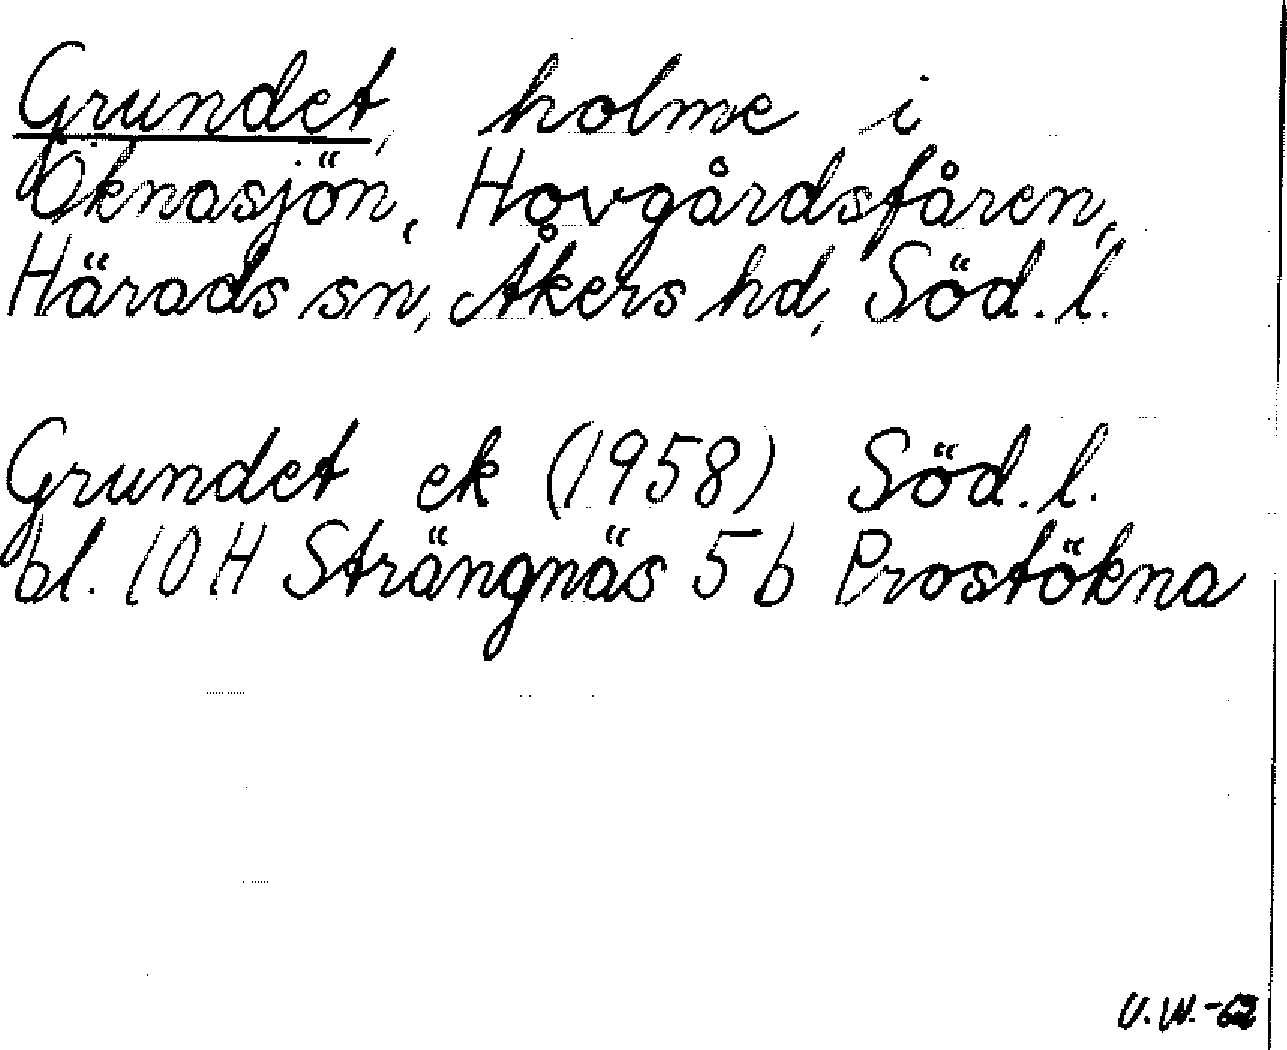 Grundet, holme i
Öknasjön, Hovgårdsfåren,
Härads sn, Åkers hd, Söd. l.
Grundet ek (1958) Söd. l.
bl. 10 H Strängnäs 5 b Prostökna
U. W. -62